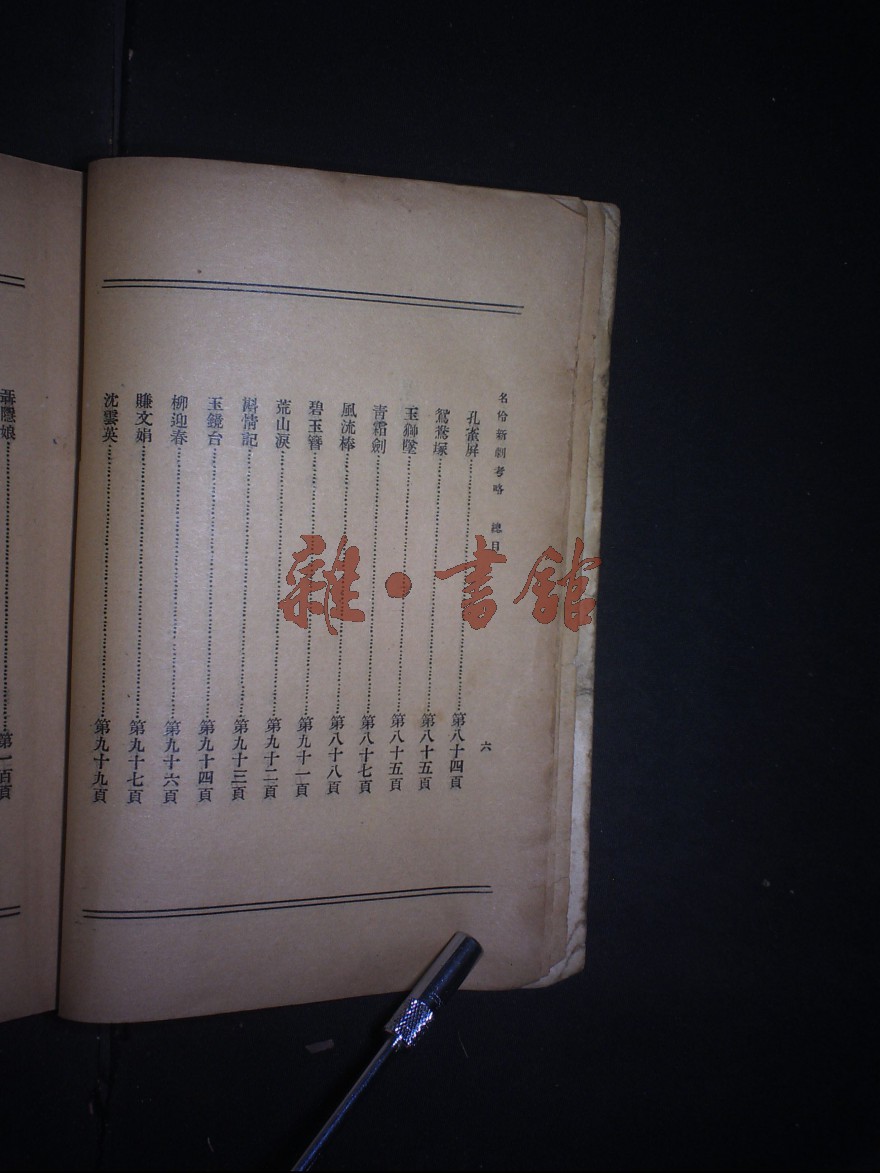 名伶新劇考略 總目
六
孔雀屏……第八十四頁
鴛鴦塚……第八十五頁
玉獅墜……第八十五頁
青霜劍……第八十七頁
風流棒……第八十八頁
碧玉簪……第九十一頁
荒山淚……第九十二頁
斟情記……第九十三頁
玉鏡台……第九十四頁
柳迎春……第九十六頁
賺文娟……第九十七頁
沈雲英……第九十九頁
聶隱娘……第一百頁
雜·書館